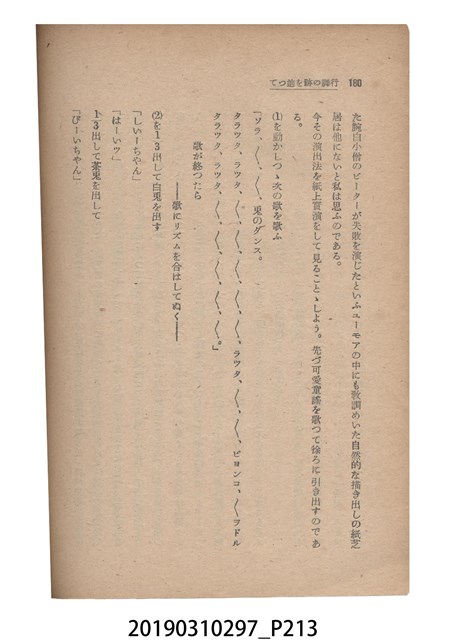 180 行脚の跡を追つて
た腕白小僧のピーターが失敗を演じたといふユーモアの中にも教訓めいた自然的な描き出しの紙芝
居は他にないと私は思ふのである。
今その演出法を紙上實演をして見ることゝしよう。先づ可愛童謠を歌つて徐ろに引き出すのであ
る。
(1)を動かしつゝ次の歌を歌ふ
「ソラ、〳〵、〳〵、兎のダンス。
タラツタ、ラツタ、〳〵、〳〵、〳〵、〳〵、ラツタ、〳〵、〳〵、ピヨンコ、〳〵ヲドル
タラツタ、ラツタ、〳〵、〳〵、〳〵、〳〵。」
歌が終つたら
――歌にリズムを合はしてぬく――
(2)を1/3出して白兎を出す
「しいーちやん」
「はーいツ」
1/3出して茶兎を出して
「ぴーいちやん」
20190310297_P213